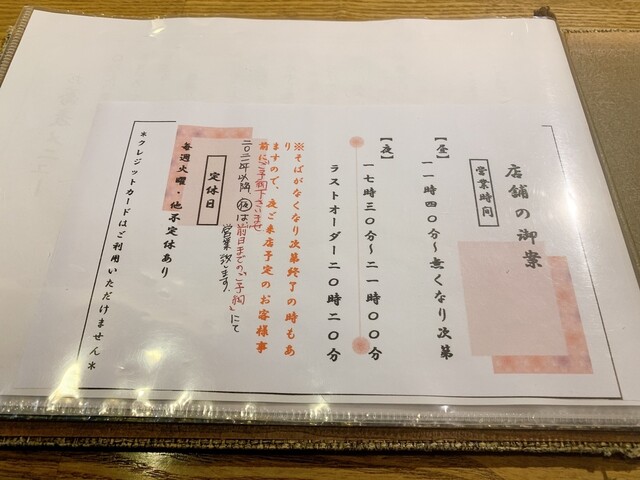 店舗の御案
営業時間
【昼】
一一時四〇分～無くなり次第
【夜】
一七時三〇分～二一時〇〇分
ラストオーダー二〇時二〇分
※そばがなくなり次第終了の時もあ
り
ますので、夜ご来店予定のお客様事
前にご予約下さいませ
二〇二一年以降、夜は「前日までのご予約」にて
営業致します。
定休日
毎週火曜・他不定休あり
＊クレジットカードはご利用いただけません＊